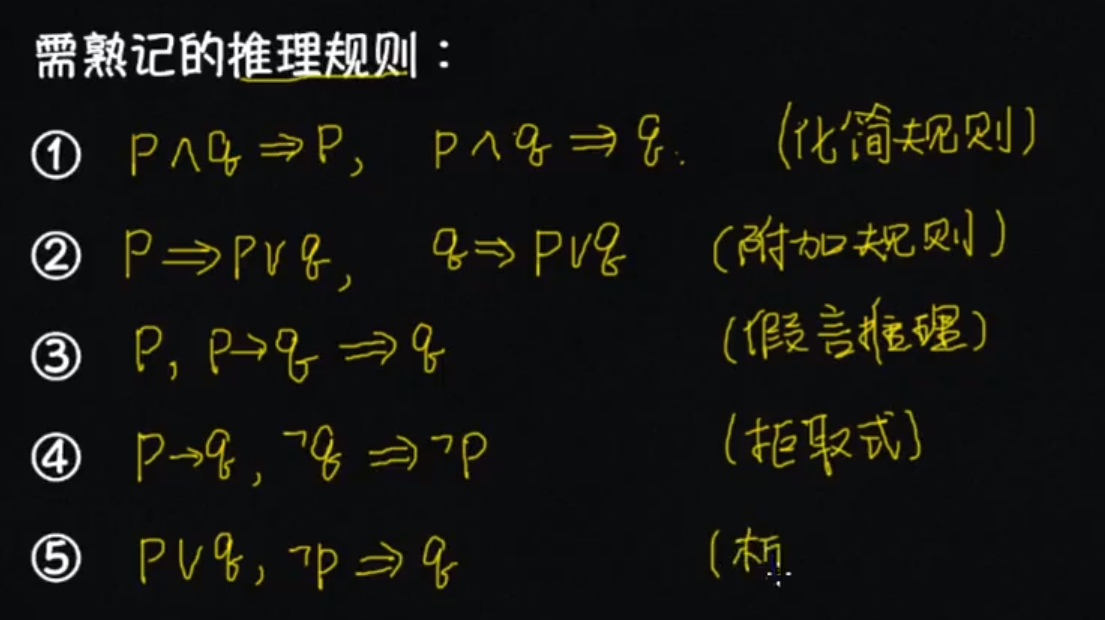 需熟记的推理规则：
① P∧q⇒P, P∧q⇒q. (化简规则)
② P⇒P∨q, q⇒P∨q (附加规则)
③ P, P→q⇒q (假言推理)
④ P→q, ¬q⇒¬P (拒取式)
⑤ P∨q, ¬p⇒q (析